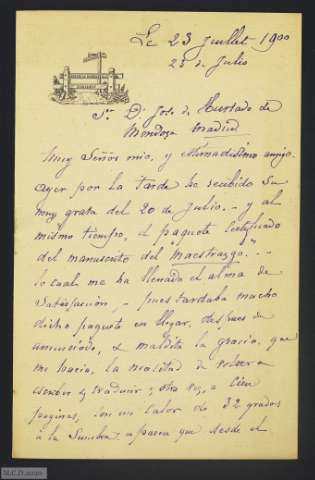 Le 23 juillet 1900
25 de Julio
Sr. Dn. José de Hurtado de
Mendoza Madrid
Muy Señor mio, y Estimadisimo amigo.
Ayer por la Tarde he recibido Su
muy grata del 20 de Julio. - y al
mismo tiempo, el paquete Certificado
del manuscrito del "Maestrazgo"...
lo cual me ha llenado el alma de
Satisfaccion, - pues tardaba mucho
dicho paquete en llegar, despues de
anunciado, & maldita la gracia, que
me hacia, la necesitad de volver a
escribir y traducir; otra vez, a Cien
paginas, con un Calor de 32 grados
à la Sombra. aparen que desde el